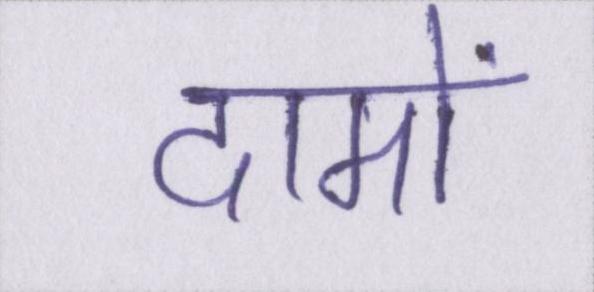 दामों